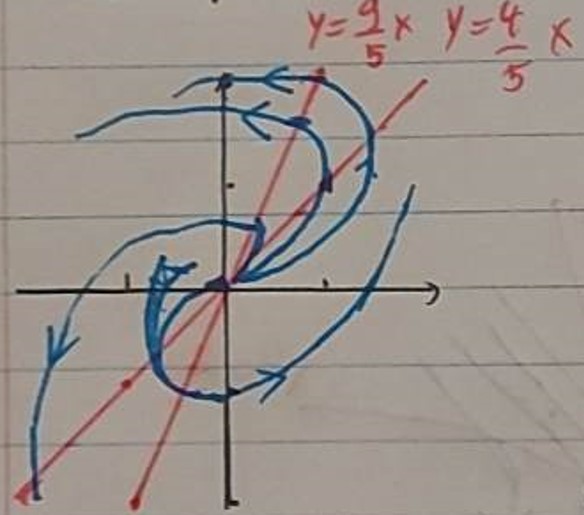 y=9/5 x y=4/5 x